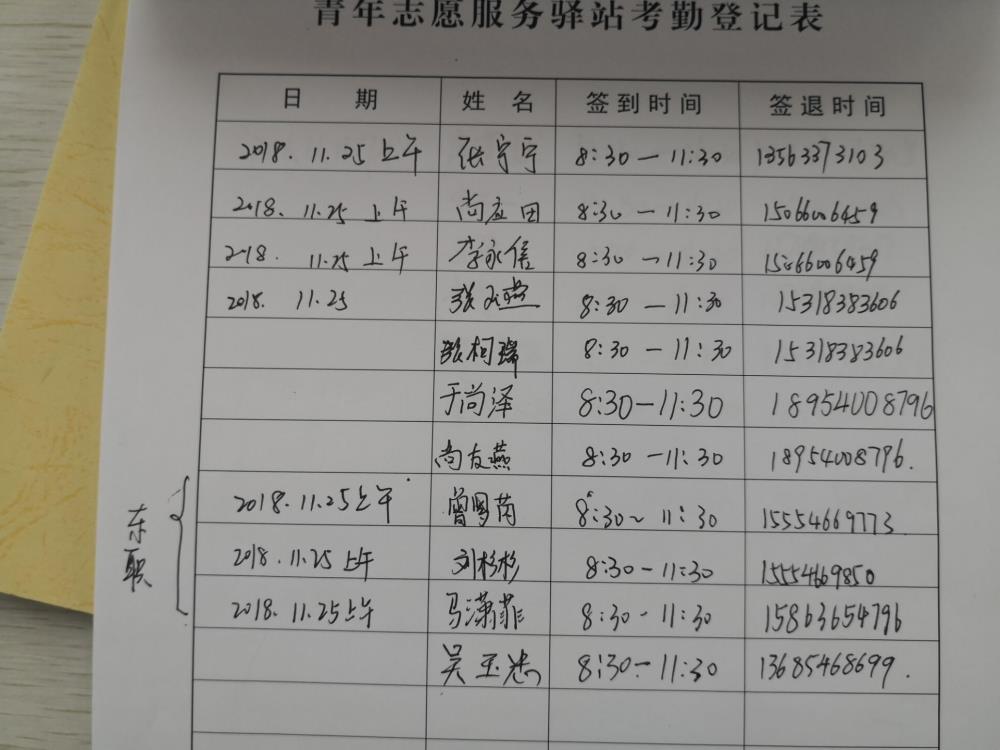 青年志愿服务驿站考勤登记表
日 期 姓 名 签到时间 签退时间
2018. 11.25 上午 张宁宁 8:30 — 11:30 13563373103
2018. 11.25 上午 尚应田 8:30 — 11:30 15066006459
2018. 11.25 上午 李永信 8:30 — 11:30 15066006459
2018. 11.25 张玉燕 8:30 — 11:30 15318383606
张柯瑞 8:30 — 11:30 15318383606
于尚泽 8:30—11:30 18954008796
尚友燕 8:30 —11:30 18954008796.
东职
2018.11.25上午 曾 芮 8:30~ 11:30 15554669773
2018.11.25 上午 刘杉杉 8:30—11:30 15554669850
2018.11.25上午 马潇菲 8:30 - 11:30 15863654796
吴玉忠 8:30—11:30 13685468699.